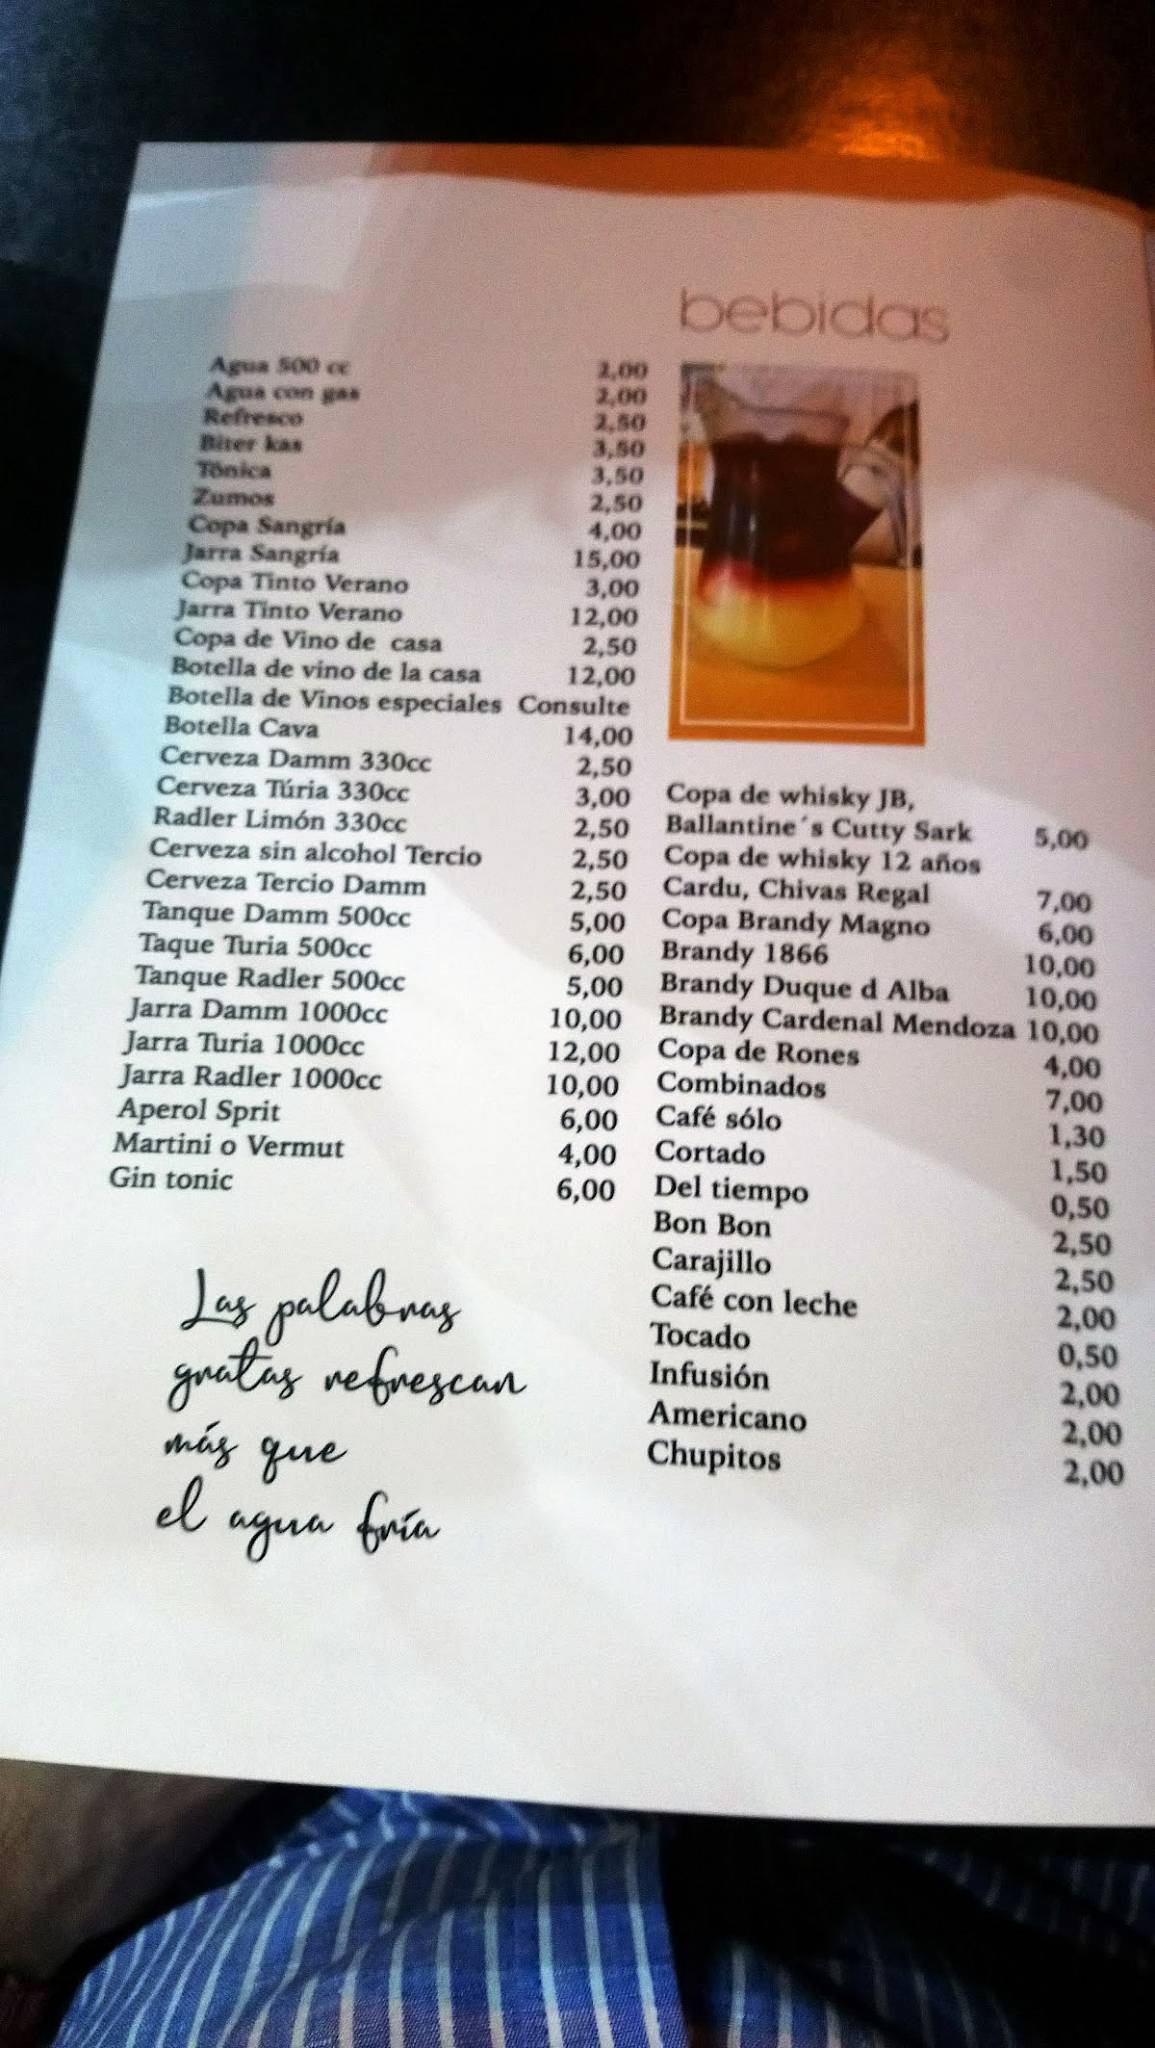 bebidas
Agua 500 cc 2,00
Agua con gas 2,00
Refresco 2,50
Biter kas 3,50
Tónica 3,50
Zumos 2,50
Copa Sangría 4,00
Jarra Sangría 15,00
Copa Tinto Verano 3,00
Jarra Tinto Verano 12,00
Copa de Vino de casa 2,50
Botella de vino de la casa 12,00
Botella de Vinos especiales Consulte
Botella Cava 14,00
Cerveza Damm 330cc 2,50
Cerveza Túria 330cc 3,00
Radler Limón 330cc 2,50
Cerveza sin alcohol Tercio 2,50
Cerveza Tercio Damm 2,50
Tanque Damm 500cc 5,00
Taque Turia 500cc 6,00
Tanque Radler 500cc 5,00
Jarra Damm 1000cc 10,00
Jarra Turia 1000cc 12,00
Jarra Radler 1000cc 10,00
Aperol Sprit 6,00
Martini o Vermut 4,00
Gin tonic 6,00
Las palabras
gratas refrescan
más que
el agua fría
Copa de whisky JB,
Ballantine´s Cutty Sark 5,00
Copa de whisky 12 años
Cardu, Chivas Regal 7,00
Copa Brandy Magno 6,00
Brandy 1866 10,00
Brandy Duque d Alba 10,00
Brandy Cardenal Mendoza 10,00
Copa de Rones 4,00
Combinados 7,00
Café sólo 1,30
Cortado 1,50
Del tiempo 0,50
Bon Bon 2,50
Carajillo 2,50
Café con leche 2,00
Tocado 0,50
Infusión 2,00
Americano 2,00
Chupitos 2,00